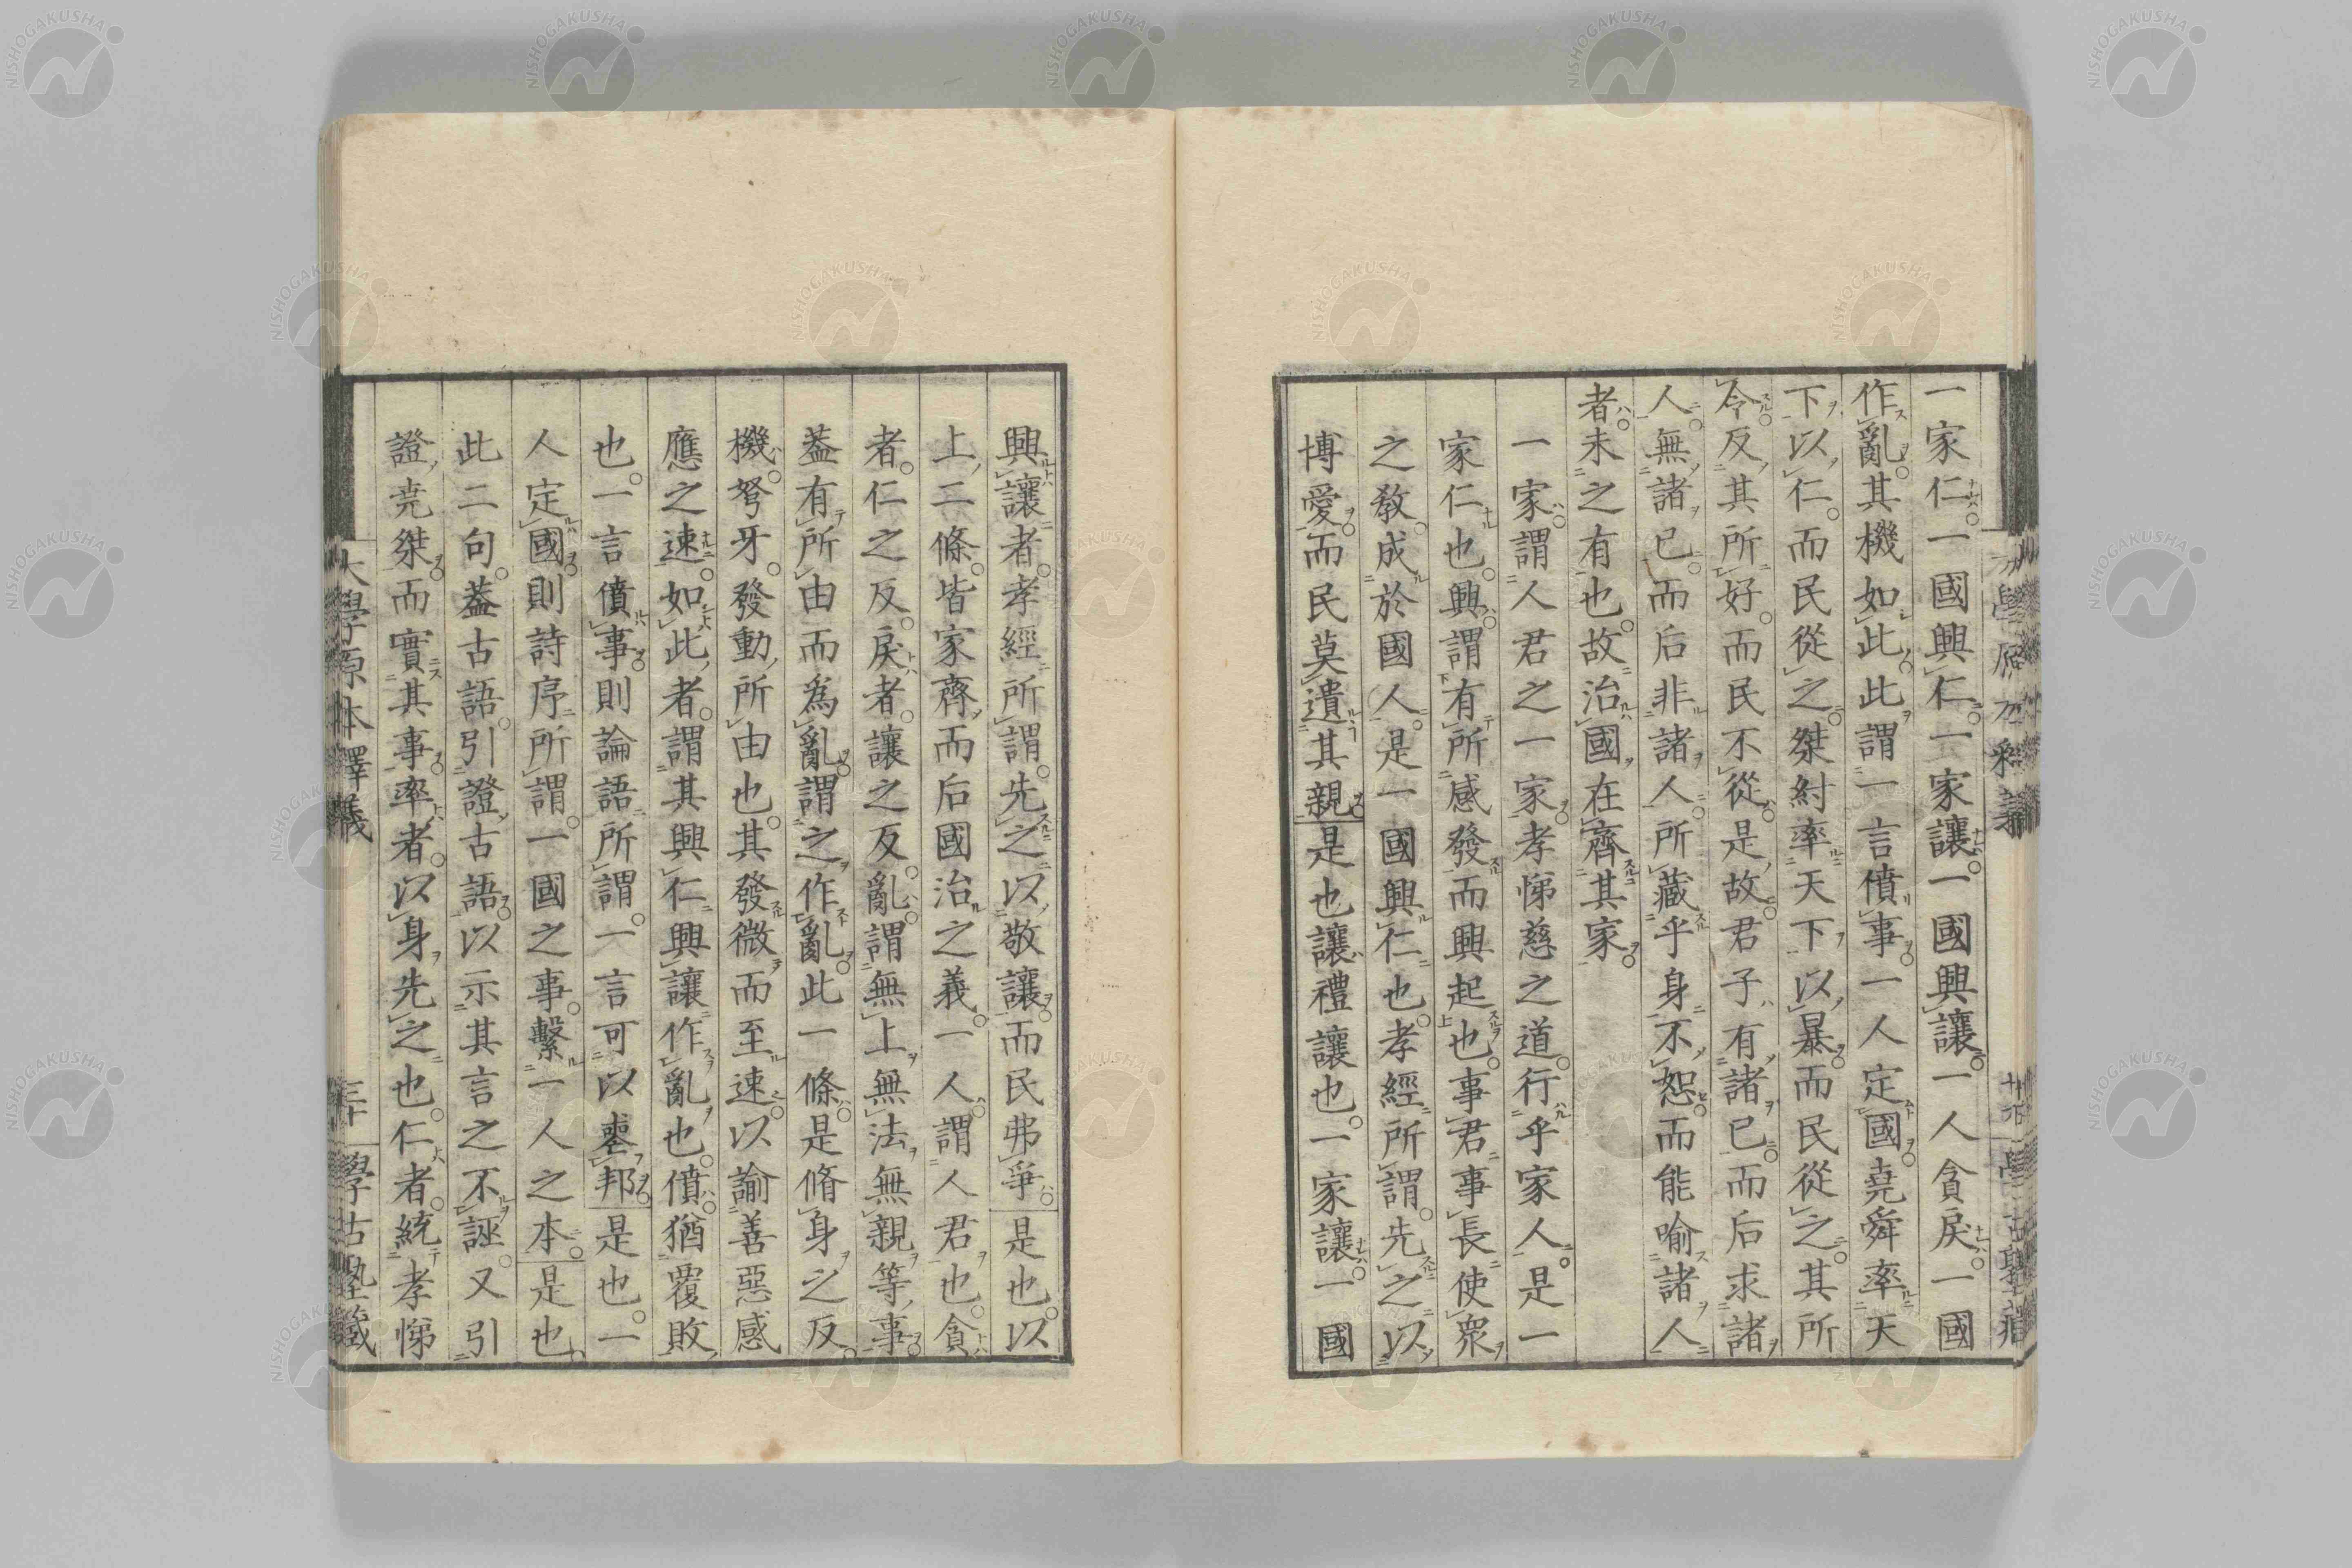 一家仁。一國興仁。一家讓。一國興讓。一人貪戾。一國
作亂。其機如此。此謂一言僨事。一人定國。堯舜率天
下以仁。而民從之。桀紂率天下以暴。而民從之。其所
令反其所好。而民不從。是故君子有諸己。而后求諸
人。無諸己。而后非諸人。所藏乎身不恕。而能喻諸人
者。未之有也。故治國在齊其家。
一家。謂人君之一家。孝悌慈之道。行乎家人。是一
家仁也。興。謂有所感發而興起也。事君事長使衆
之敎。成於國人。是一國興仁也。孝經所謂。先之以
博愛。而民莫遺其親。是也讓禮讓也。一家讓。一國
興讓者。孝經所謂。先之以敬讓。而民弗爭。是也。以
上二條。皆家齊而后國治之義。一人。謂人君也。貪
者。仁之反。戾者。讓之反。亂。謂無上無法無親等事。
蓋有所由而爲亂。謂之作亂。此一條。是脩身之反。
機。弩牙。發動所由也。其發微而至速。以諭善惡感
應之速。如此者。謂其興仁興讓作亂也。僨。猶覆敗
也。一言僨事。則論語所謂。一言可以喪邦。是也。一
人定國。則詩序所謂。一國之事。繫一人之本。是也。
此二句。蓋古語。引證古語。以示其言之不誣。又引
證堯桀。而實其事。率者。以身先之也。仁者。統孝悌
大學原本釋義
三十
學古塾籖
NISHOGAKUSHA